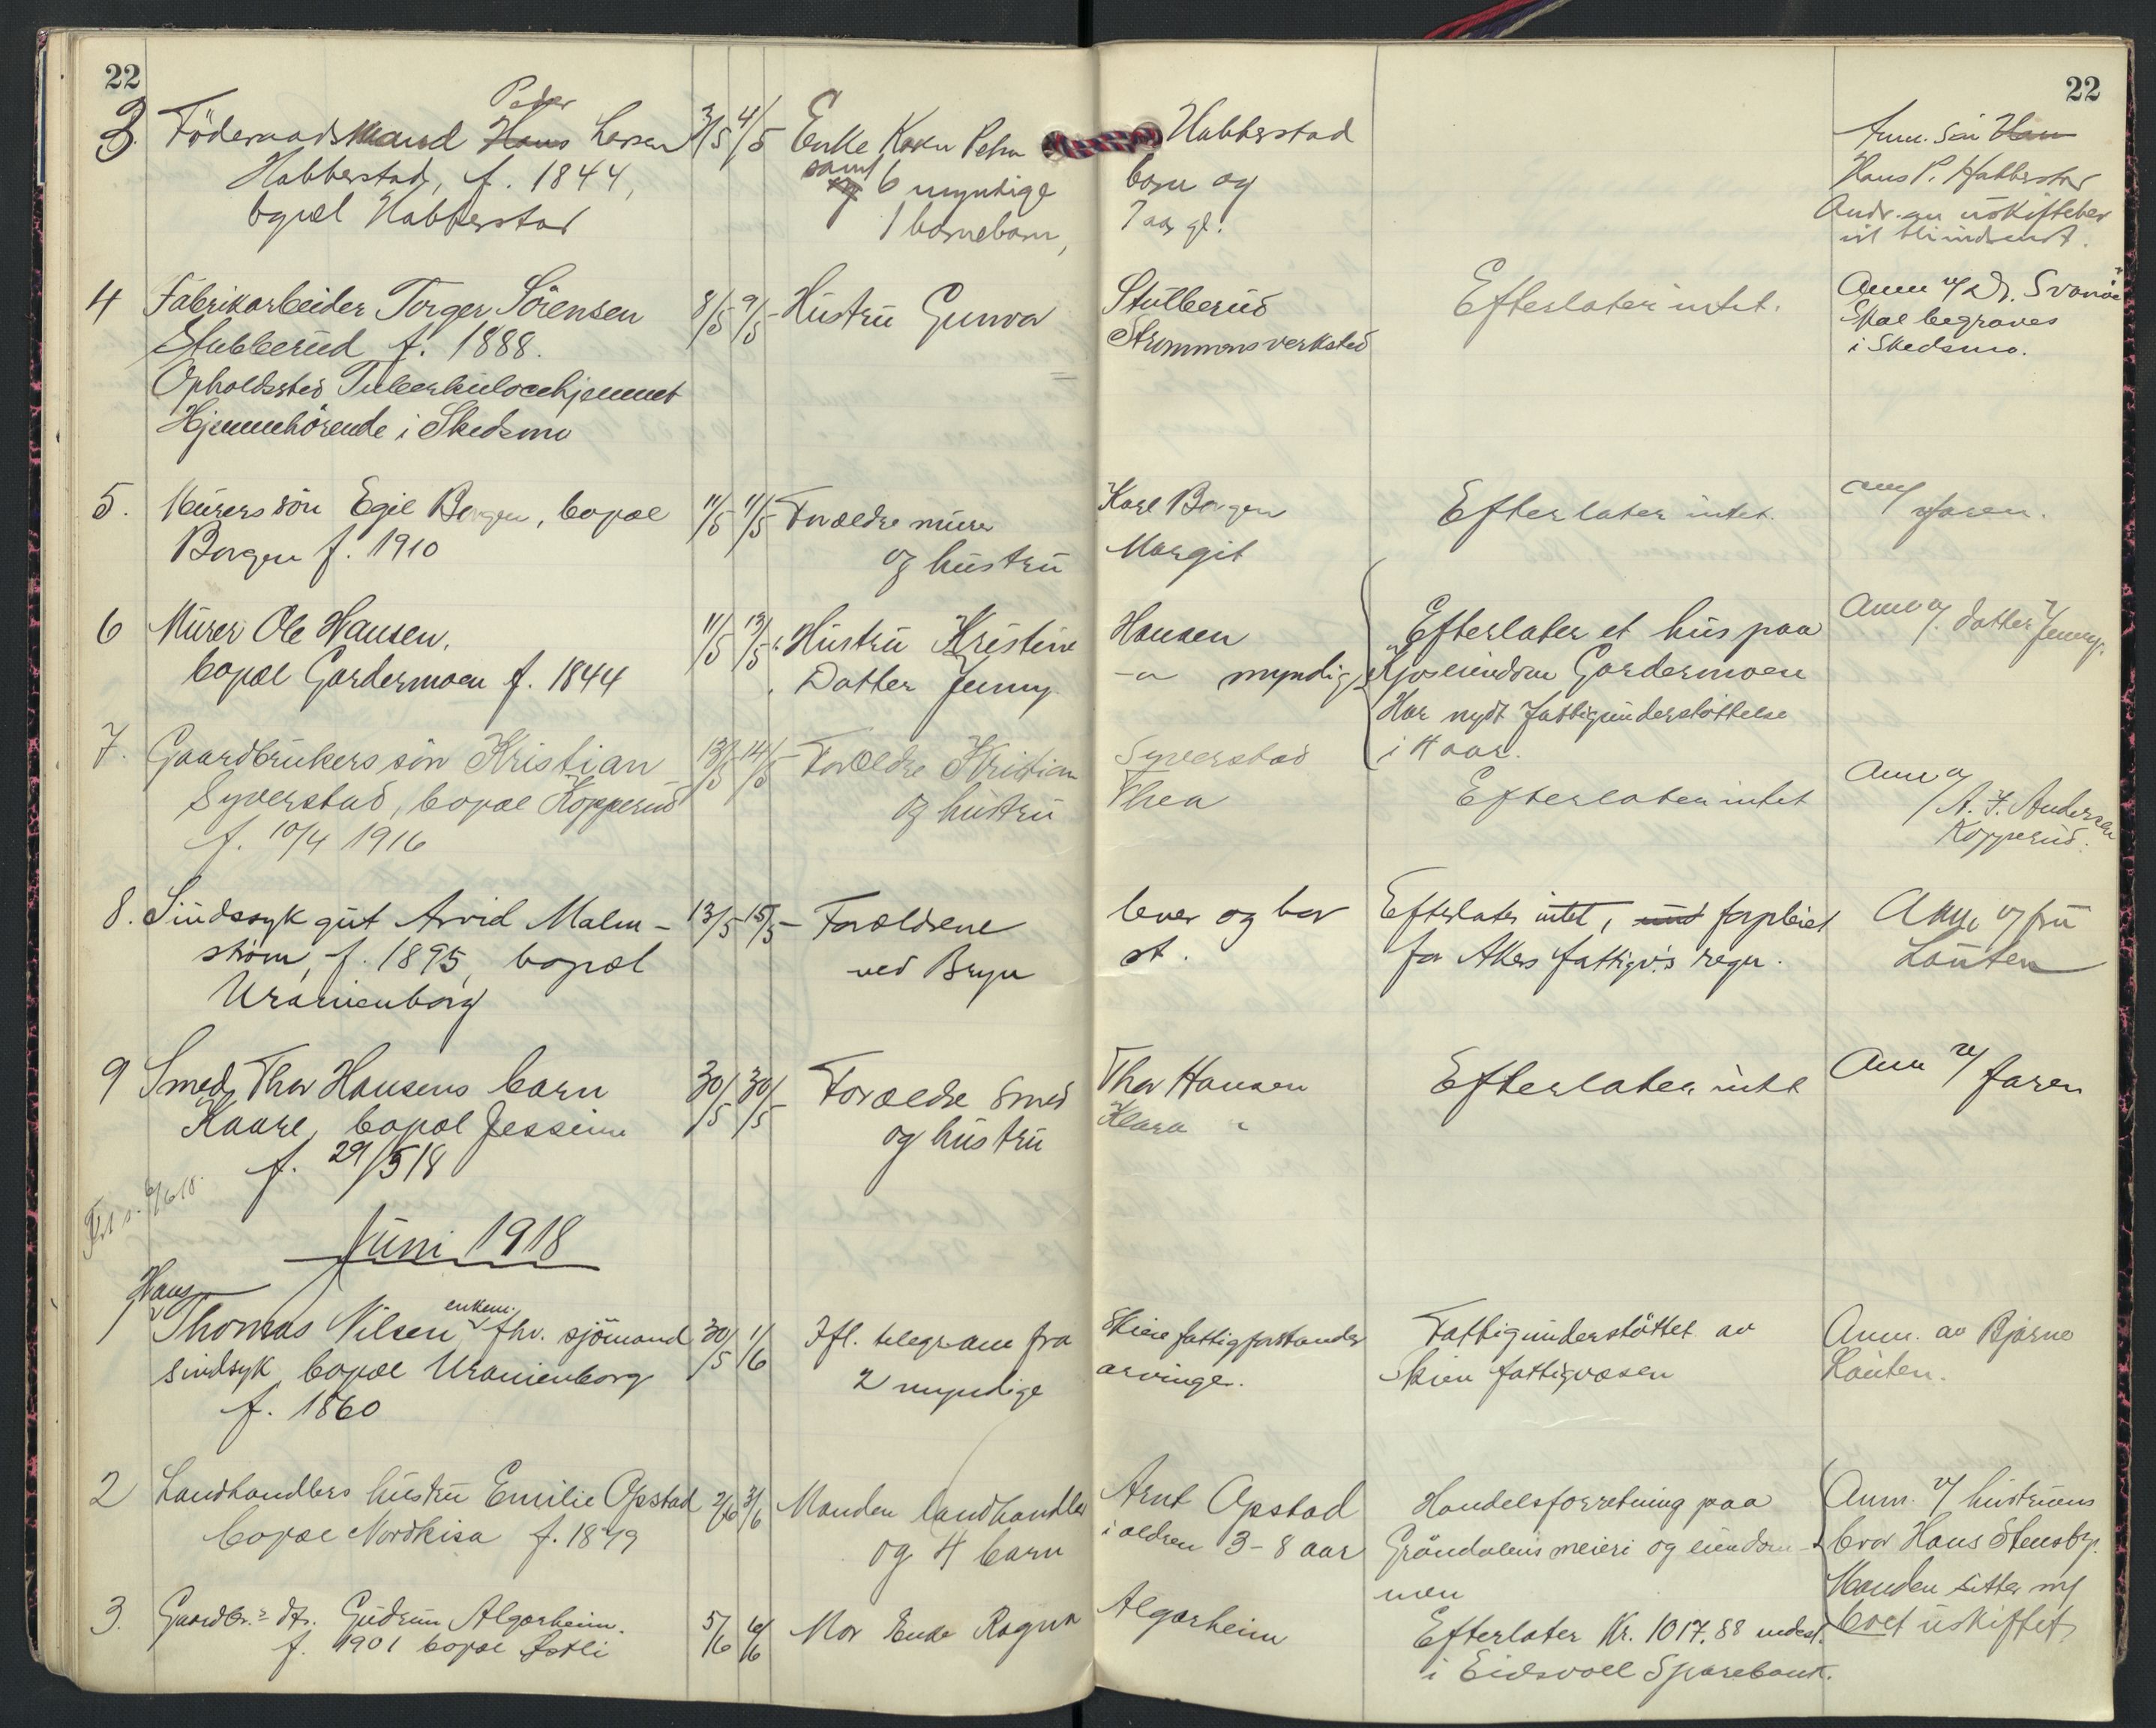 22
22
Peder
3. Föderaadsmand Hans Larsen 3/5 4/5 Enke Karen Petra Habberstad Anm. Sön Han
Habberstad, f. 1844, samt og 6 myndige börn og Hans P. Habberstad
bopæl Habberstad 1 barnebarn, 7 aar gl. Andr. om uskiftebev
vil bli indsendt.
4 Fabrikarbeider Torger Sörensen 8/5 9/5 Hustru Gunvor Stubberud Efterlater intet. Anm v/ Dr. Svanöe
Stubberud f. 1888. Strömmens verksted Skal begraves
Opholdssted Tuberkulosehjemmet i Skedsmo.
Hjemmehörende i Skedsmo
5. Murers sön Egil Borgen, bopæl 11/5 11/5 Forældre murer Karl Borgen Efterlater intet. Anm v/ faren.
Borgen f. 1910 og hustru Margit
6 Murer Ole Hansen, 11/5 13/5 Hustru Kristine Hansen Efterlater et hus paa Anm v/ datter Jenny.
bopæl Gardermoen f. 1844 Datter Jenny -"- myndig eiendom Gardermoen
Har nydt fattigunderstöttelse
i 4 aar.
7. Gaardbrukers sön Kristian 13/5 14/5 Forældre Kristian Syverstad
Syverstad, bopæl Kopperud og hustru Thea Efterlater intet Anm v/ A. F. Andersen
f. 10/4 1916 Kopperud.
8. Sindssyk gut Arvid Malm- 13/5 15/5 Forældrene lever og bor Efterlater intet, und forpleiet Anm v/ fru
ström, f. 1895, bopæl ved Bryn st. for Akers fattigv.s regn. Lauten
Uranienborg
9 Smed Thor Hansens barn 30/5 30/5 Forældre Smed Thor Hansen Efterlater intet Anm v/ faren
Kaare, bopæl Jessheim og hustru Klara "
f. 29/5 18
6/6 18.
Juni 1918
Hans
1 Thomas Nilsen enkem. fhv. sjömand 30/5 1/6 Ifl. telegram fra Skien fattigforstander Fattigunderstöttet av Anm. av Bjarne
sindsyk bopæl Uranienborg 2 myndige arvinger. Skien fattigvæsen Lauten.
f. 1860
2 Landhandlers hustru Emilie Opstad 2/6 3/6 Manden landhandler Arnt Opstad Handelsforretning paa Anm. v/ hustruens
bopæl Nordkisa f. 1879 og 4 barn i alderen 3-8 aar Gröndalens meieri og eiendom- bror Hans Stensby.
men Manden sitter m/
boet uskiftet
3. Gaardbr.s dtr. Gudrun Algarheim. 5/6 6/6 Mor Enke Ragna Algarheim Efterlater Kr. 1017.88 indest.
f. 1901 bopæl Østli i Eidsvoll Sparebank.